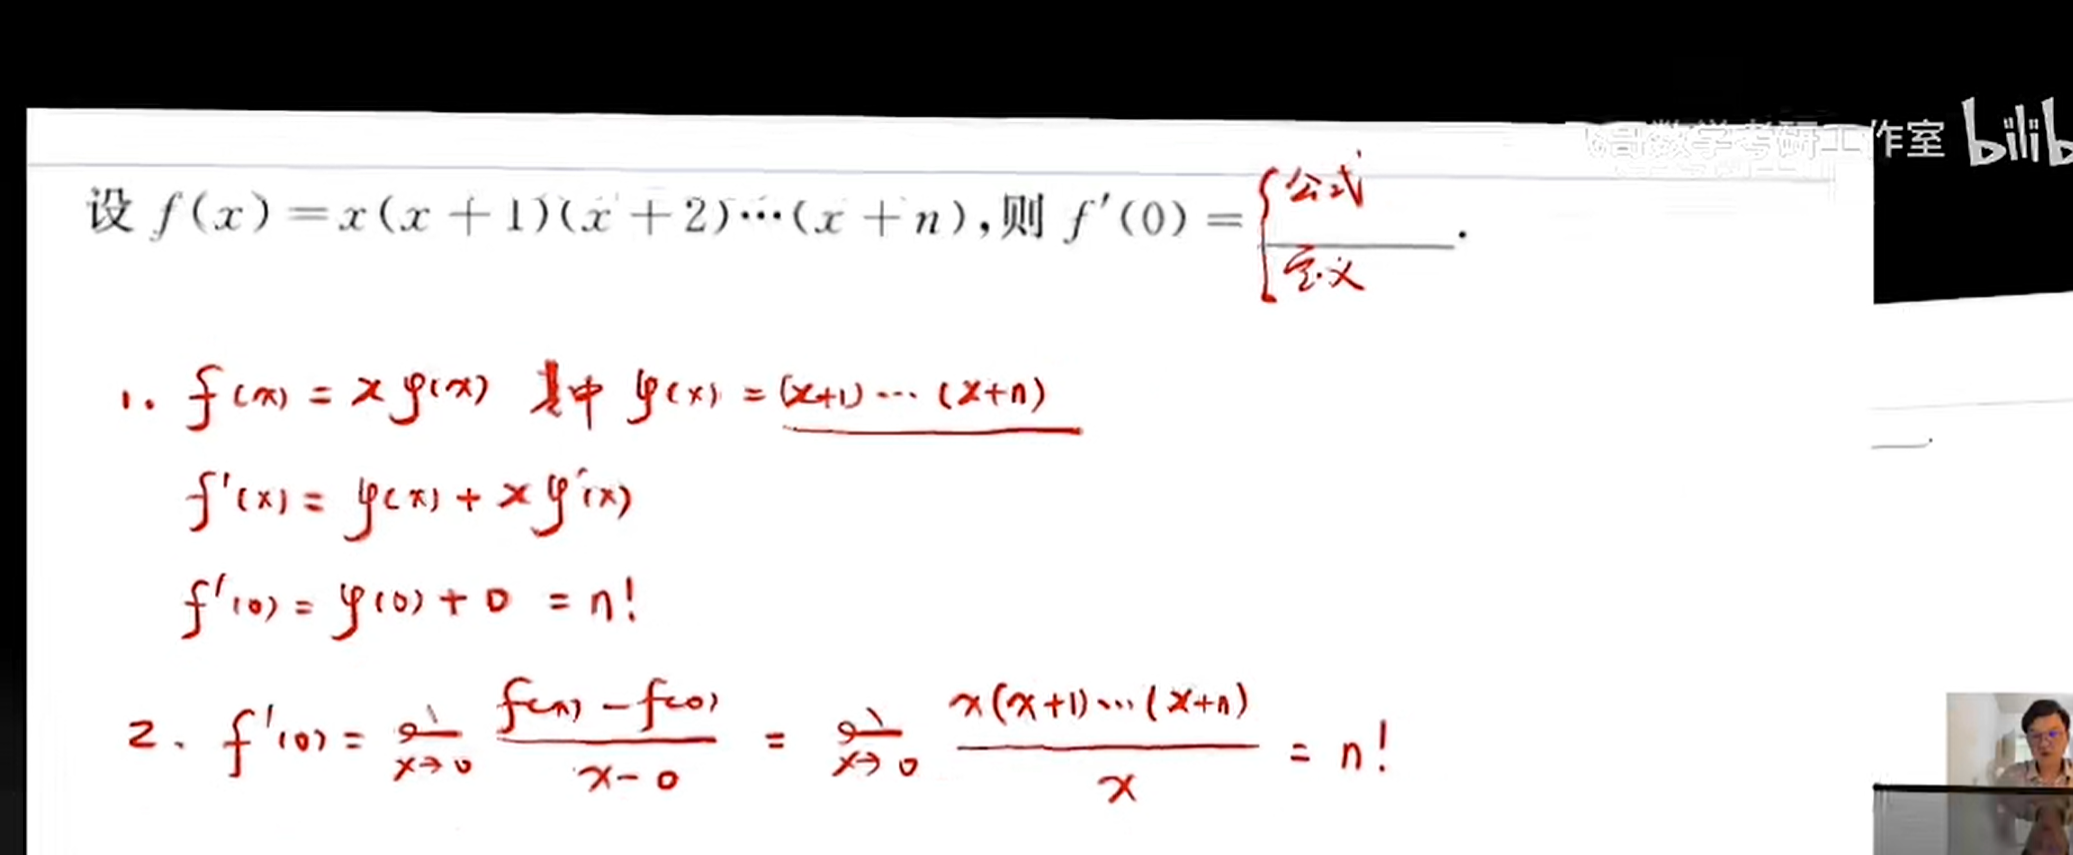 数学考研工作室 bilib
设 f(x)=x(x+1)(x+2)⋯(x+n),则 f′(0)=____.
公式
定义
1. f(x) = xφ(x) 其中 φ(x) = (x+1)⋯(x+n)
f'(x) = φ(x) + xφ'(x)
f'(0) = φ(0) + 0 = n!
2. f'(0) = lim x→0 (f(x) - f(0))/(x-0) = lim x→0 (x(x+1)⋯(x+n))/x = n!